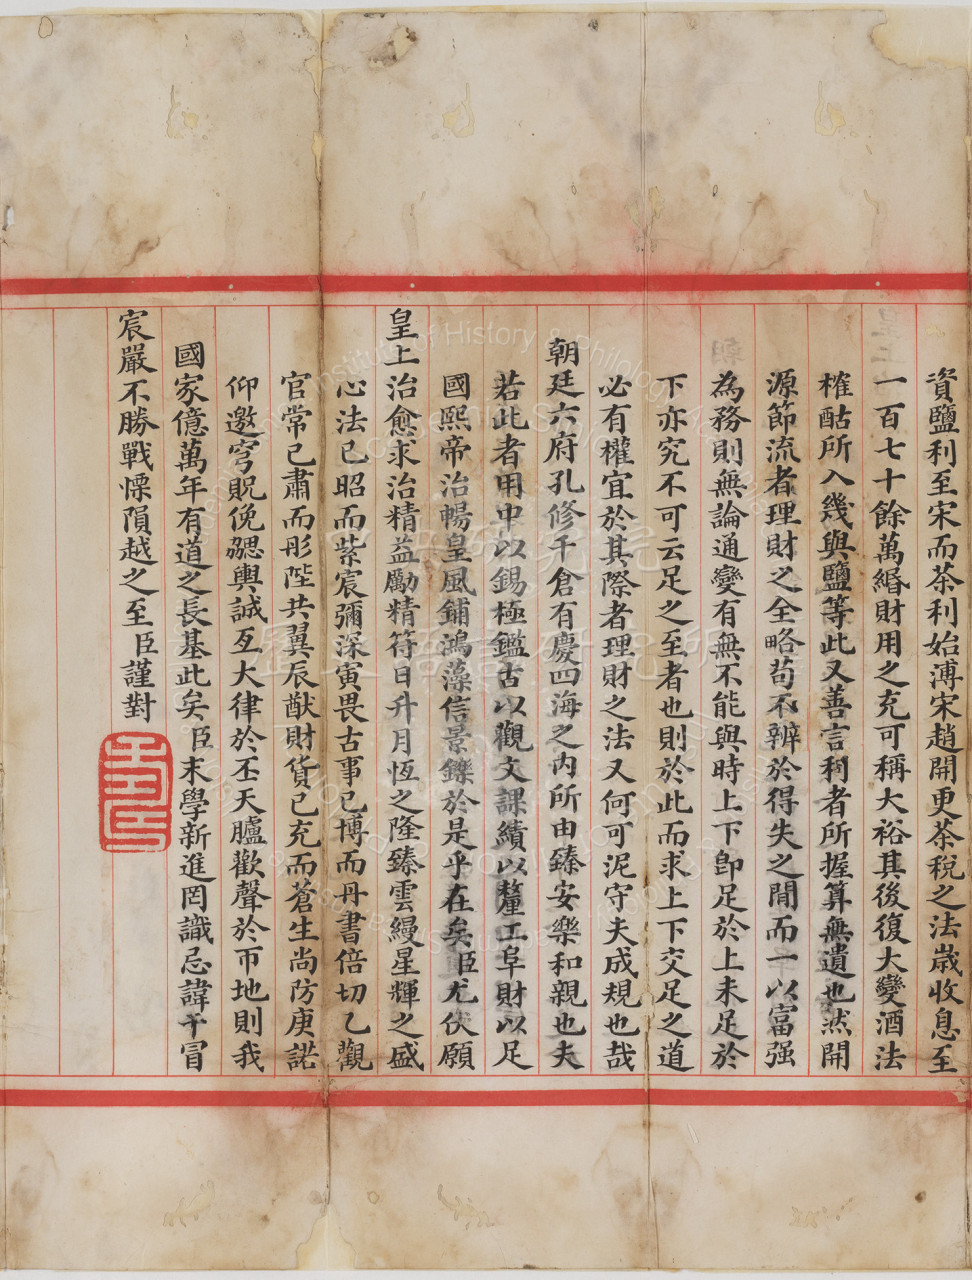 資鹽利至宋而茶利始溥宋趙開更茶稅之法歲收息至
一百七十餘萬緡財用之充可稱大裕其後復大變酒法
榷酤所入幾與鹽等此又善言利者所握算無遺也然開
源節流者理財之全略苟不辨於得失之間而一以富强
為務則無論通變有無不能與時上下卽足於上未足於
下亦究不可云足之至者也則於此而求上下交足之道
必有權宜於其際者理財之法又何可泥守夫成規也哉
朝廷六府孔修千倉有慶四海之內所由臻安樂和親也夫
若此者用中以錫極鑑古以觀文課績以釐工阜財以足
國熙帝治暢皇風鋪鴻藻信景鑠於是乎在矣臣尤伏願
皇上治愈求治精益勵精符日升月恆之隆臻雲縵星輝之盛
心法已昭而紫宸彌深寅畏古事已博而丹書倍切乙觀
官常已肅而彤陛共翼辰猷財貨已充而蒼生尚防庚諾
仰邀穹貺俛勰輿誠亙大律於丕天臚歡聲於帀地則我
國家億萬年有道之長基此矣臣末學新進罔識忌諱干冒
宸嚴不勝戰慄隕越之至臣謹對